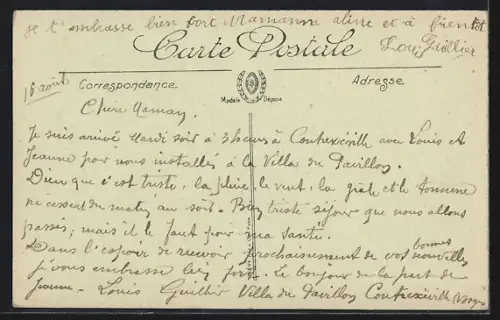 je t'embrasse bien fort Mamanne aline et à bientôt
Carte Postale
16 août
Correspondance
Adresse
Modèle Déposé
Chère Maman.
Je suis arrivé Mardi soir à 3 heures à Contrexéville avec Louis et
Jeanne pour nous installés à la Villa du Pavillon.
Dieu que c'est triste, la pluie, le vent, la grêle et le tonnerre
ne cessent du matin au soir. Bien triste séjour que nous allons
passés, mais il le faut pour ma santé.
Dans l'espoir de recevoir prochainement de vos bonnes nouvelles
je vous embrasse bien fort. Le bonjour de la part de
Jeanne - Louis Villa du Pavillon Contrexéville Vosges